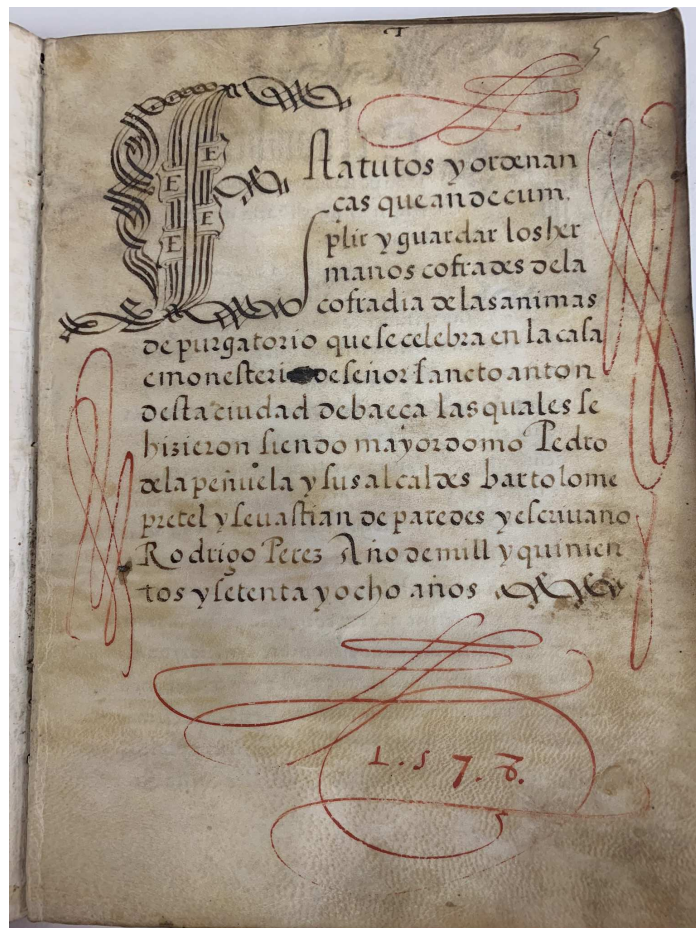 Estatutos y ordenan
ças que an de cum
plir y guardar los her
manos cofrades de la
cofradia de las animas
de purgatorio que se celebra en la casa
e monesterio de señor sancto anton
desta ciudad de baeça las quales se
hizieron siendo mayordomo Pedro
de la peñuela y sus alcaldes bartolome
pretel y sevastian de paredes y escrivano
Rodrigo Perez Año de mill y quinien
tos y setenta y ocho años
1.57.8.